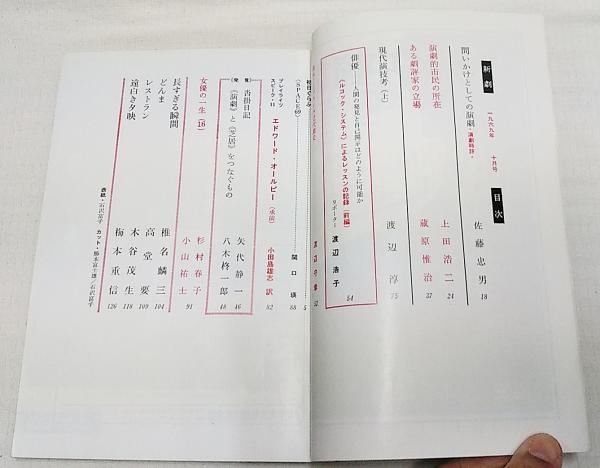 新劇 一九六九年 十月号 目次
問いかけとしての演劇・演劇時評・ 佐藤忠男 18
演劇的市民の所在 上田浩二 24
ある劇評家の立場 蔵原惟治 37
現代演技考（上） 渡辺淳 75
俳優――人間の発見と自己開示はどのように可能か
《ルコック・システム》によるレッスンの記録（前編） リポーター 渡辺浩子 54
52
5
《SPACE69》 関口瑛 88
プレイライツ・スピーク・11 エドワード・オールビー（承前） 小田島雄志 訳 82
沓掛日記 矢代静一 46
《演劇》と《芝居》をつなぐもの 八木柊一郎 48
女優の一生（16） 杉村春子
小山祐士 91
長すぎる瞬間 椎名麟三 104
どんま 高堂要 109
レストラン 木谷茂生 118
遠白き夕映 梅本重信 126
表紙・石沢富子
カット・梅本富士雄／石沢富子